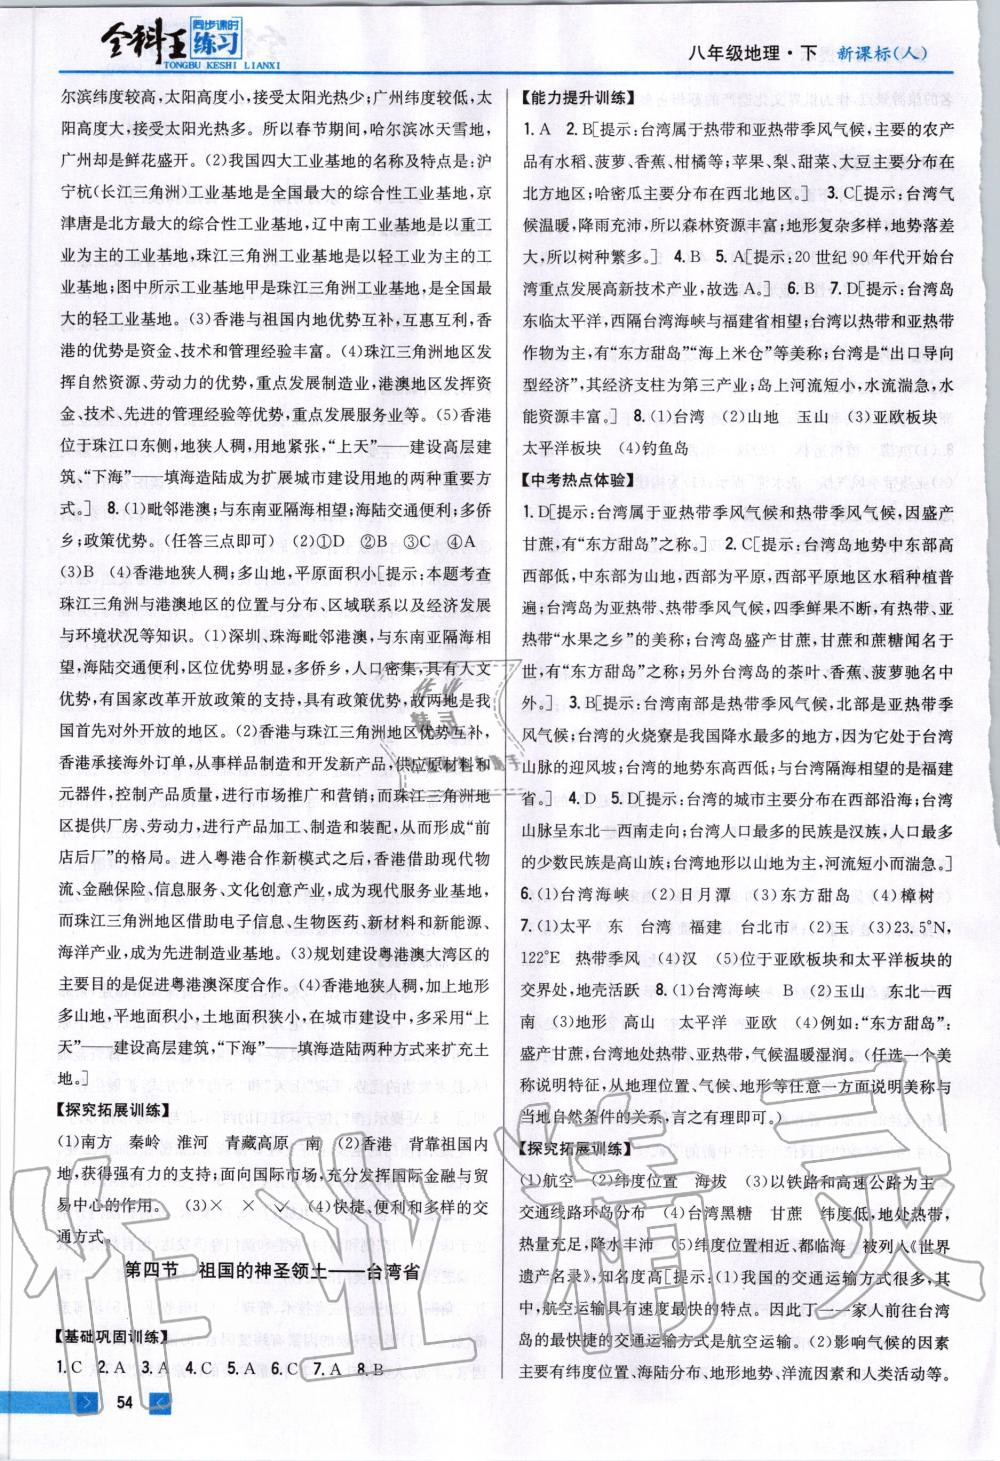 全科王 同步课时练习
TONGBU KESHI LIANXI
八年级地理·下 新课标(人)
尔滨纬度较高,太阳高度小,接受太阳光热少;广州纬度较低,太
阳高度大,接受太阳光热多。所以春节期间,哈尔滨冰天雪地,
广州却是鲜花盛开。(2)我国四大工业基地的名称及特点是:沪
宁杭(长江三角洲)工业基地是全国最大的综合性工业基地,京
津唐是北方最大的综合性工业基地,辽中南工业基地是以重工
业为主的工业基地,珠江三角洲工业基地是以轻工业为主的工
业基地;图中所示工业基地甲是珠江三角洲工业基地,是全国最
大的轻工业基地。(3)香港与祖国内地优势互补,互惠互利,香
港的优势是资金、技术和管理经验丰富。(4)珠江三角洲地区发
挥自然资源、劳动力的优势,重点发展制造业,港澳地区发挥资
金、技术、先进的管理经验等优势,重点发展服务业等。(5)香港
位于珠江口东侧,地狭人稠,用地紧张,“上天”——建设高层建
筑、“下海”——填海造陆成为扩展城市建设用地的两种重要方
式。] 8.(1)毗邻港澳;与东南亚隔海相望;海陆交通便利;多侨
乡;政策优势。(任答三点即可) (2)①D ②B ③C ④A
(3)B (4)香港地狭人稠;多山地,平原面积小[提示:本题考查
珠江三角洲与港澳地区的位置与分布、区域联系以及经济发展
与环境状况等知识。(1)深圳、珠海毗邻港澳,与东南亚隔海相
望,海陆交通便利,区位优势明显,多侨乡,人口密集,具有人文
优势,有国家改革开放政策的支持,具有政策优势,故两地是我
国首先对外开放的地区。(2)香港与珠江三角洲地区优势互补,
香港承接海外订单,从事样品制造和开发新产品,供应原材料和
元器件,控制产品质量,进行市场推广和营销;而珠江三角洲地
区提供厂房、劳动力,进行产品加工、制造和装配,从而形成“前
店后厂”的格局。进入粤港合作新模式之后,香港借助现代物
流、金融保险、信息服务、文化创意产业,成为现代服务业基地,
而珠江三角洲地区借助电子信息、生物医药、新材料和新能源、
海洋产业,成为先进制造业基地。(3)规划建设粤港澳大湾区的
主要目的是促进粤港澳深度合作。(4)香港地狭人稠,加上地形
多山地,平地面积小,土地面积狭小,在城市建设中,多采用“上
天”——建设高层建筑,“下海”——填海造陆两种方式来扩充土
地。]
【探究拓展训练】
(1)南方 秦岭 淮河 青藏高原 南 (2)香港 背靠祖国内
地,获得强有力的支持;面向国际市场,充分发挥国际金融与贸
易中心的作用。 (3)× × ✓ (4)快捷、便利和多样的交
通方式。
第四节 祖国的神圣领土——台湾省
【基础巩固训练】
1.C 2.A 3.A 4.C 5.A 6.C 7.A 8.B
54
【能力提升训练】
1.A 2.B[提示:台湾属于热带和亚热带季风气候,主要的农产
品有水稻、菠萝、香蕉、柑橘等;苹果、梨、甜菜、大豆主要分布在
北方地区;哈密瓜主要分布在西北地区。] 3.C[提示:台湾气
候温暖,降雨充沛,所以森林资源丰富;地形复杂多样,地势落差
大,所以树种繁多。] 4.B 5.A[提示:20世纪90年代开始台
湾重点发展高新技术产业,故选A。] 6.B 7.D[提示:台湾岛
东临太平洋,西隔台湾海峡与福建省相望;台湾以热带和亚热带
作物为主,有“东方甜岛”“海上米仓”等美称;台湾是“出口导向
型经济”,其经济支柱为第三产业;岛上河流短小,水流湍急,水
能资源丰富。] 8.(1)台湾 (2)山地 玉山 (3)亚欧板块
太平洋板块 (4)钓鱼岛
【中考热点体验】
1.D[提示:台湾属于亚热带季风气候和热带季风气候,因盛产
甘蔗,有“东方甜岛”之称。] 2.C[提示:台湾岛地势中东部高
西部低,中东部为山地,西部为平原,西部平原地区水稻种植普
遍;台湾岛为亚热带、热带季风气候,四季鲜果不断,有热带、亚
热带“水果之乡”的美称;台湾岛盛产甘蔗,甘蔗和蔗糖闻名于
世,有“东方甜岛”之称;另外台湾岛的茶叶、香蕉、菠萝驰名中
外。] 3.B[提示:台湾南部是热带季风气候,北部是亚热带季
风气候;台湾的火烧寮是我国降水最多的地方,因为它处于台湾
山脉的迎风坡;台湾的地势东高西低;与台湾隔海相望的是福建
省。] 4.D 5.D[提示:台湾的城市主要分布在西部沿海;台湾
山脉呈东北—西南走向;台湾人口最多的民族是汉族,人口最多
的少数民族是高山族;台湾地形以山地为主,河流短小而湍急。]
6.(1)台湾海峡 (2)日月潭 (3)东方甜岛 (4)樟树
7.(1)太平 东 台湾 福建 台北市 (2)玉 (3)23.5°N,
122°E 热带季风 (4)汉 (5)位于亚欧板块和太平洋板块的
交界处,地壳活跃 8.(1)台湾海峡 B (2)玉山 东北—西
南 (3)地形 高山 太平洋 亚欧 (4)例如:“东方甜岛”:
盛产甘蔗,台湾地处热带、亚热带,气候温暖湿润。(任选一个美
称说明特征,从地理位置、气候、地形等任意一方面说明美称与
当地自然条件的关系,言之有理即可。)
【探究拓展训练】
(1)航空 (2)纬度位置 海拔 (3)以铁路和高速公路为主
交通线路环岛分布 (4)台湾黑糖 甘蔗 纬度低,地处热带,
热量充足,降水丰沛 (5)纬度位置相近、都临海 被列入《世界
遗产名录》,知名度高[提示:(1)我国的交通运输方式很多,其
中,航空运输具有速度最快的特点。因此丁一一家人前往台湾
岛的最快捷的交通运输方式是航空运输。(2)影响气候的因素
主要有纬度位置、海陆分布、地形地势、洋流因素和人类活动等。
作业精灵